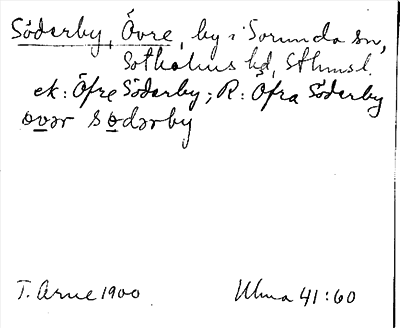 Söderby, Övre, by i Sorunda sn,
Sotholms hd, Sthmsl.
ek: Öfre Söderby; R: Ofra Söderby
ovər sodərby
T. Arne 1900 Ulma 41:60